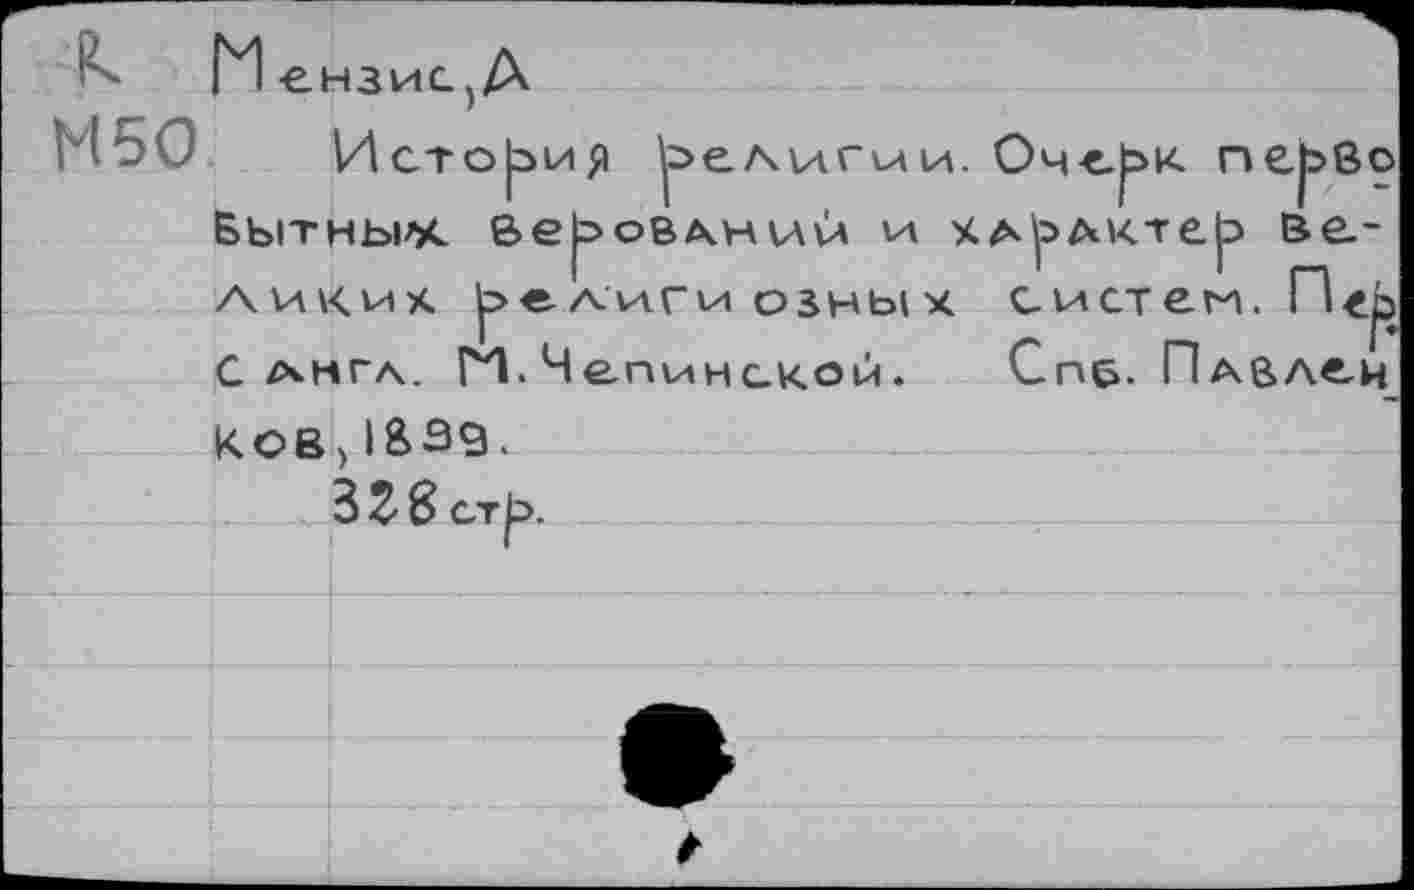 R Мензис, Д
М50 История религии. Очерк перво
бытных верований и характер ве-
ликих религиозных систем. Пер.
с англ. М. Чепинской. Спб. Павлен
ков, 1899.
328 стр.